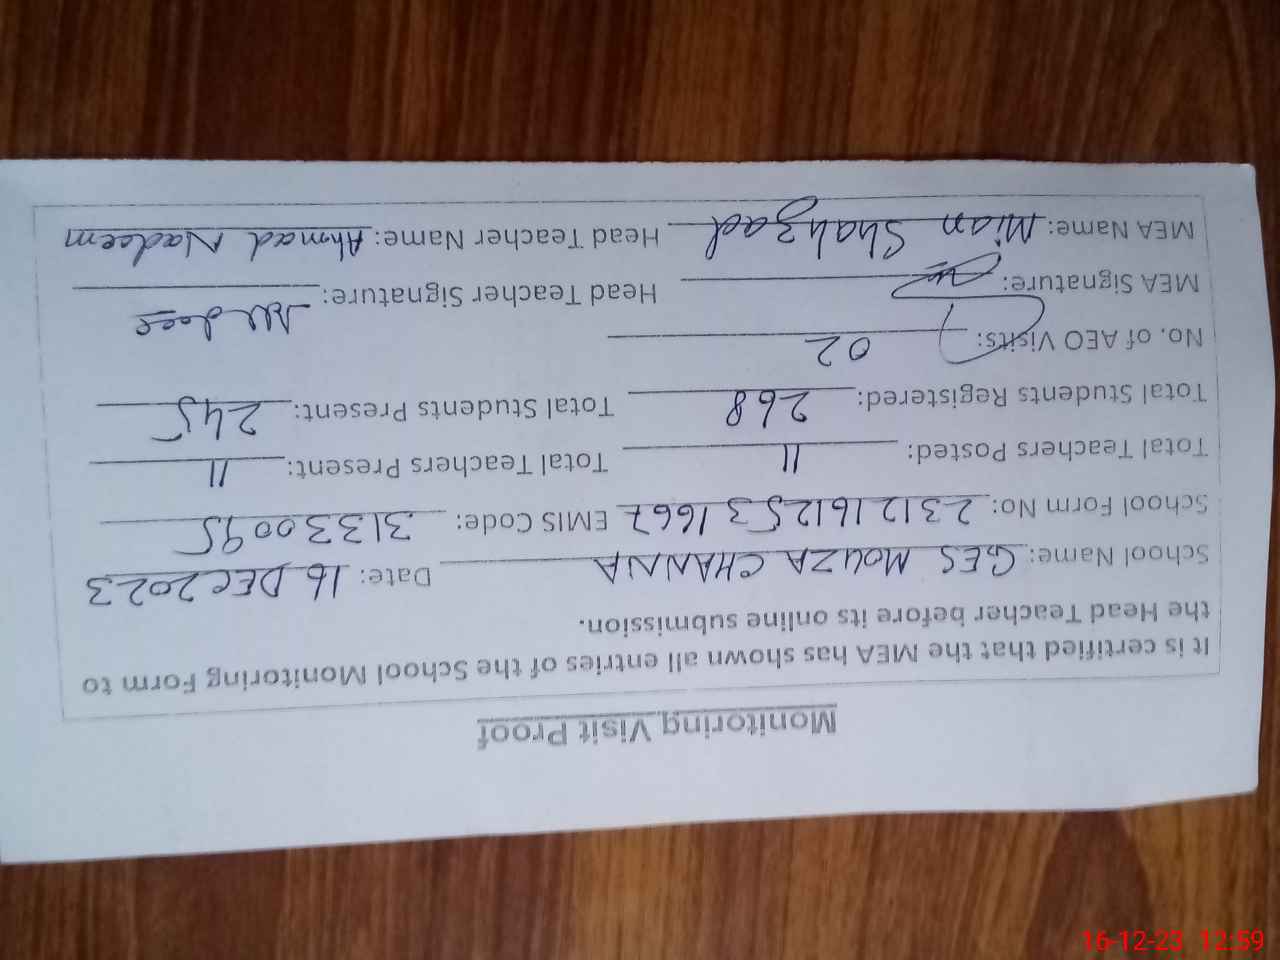 Monitoring Visit Proof
It is certified that the MEA has shown all entries of the School Monitoring Form to
the Head Teacher before its online submission.
School Name: GES MOUZA CHANNA Date: 16 DEC 2023
School Form No: 2312161253 1667 EMIS Code: 31330095
Total Teachers Posted: 11 Total Teachers Present: 11
Total Students Registered: 268 Total Students Present: 245
No. of AEO Visits: 02
MEA Signature: Head Teacher Signature:
MEA Name: Mian Shahzad Head Teacher Name: Ahmad Nadeem
16-12-23 12:59